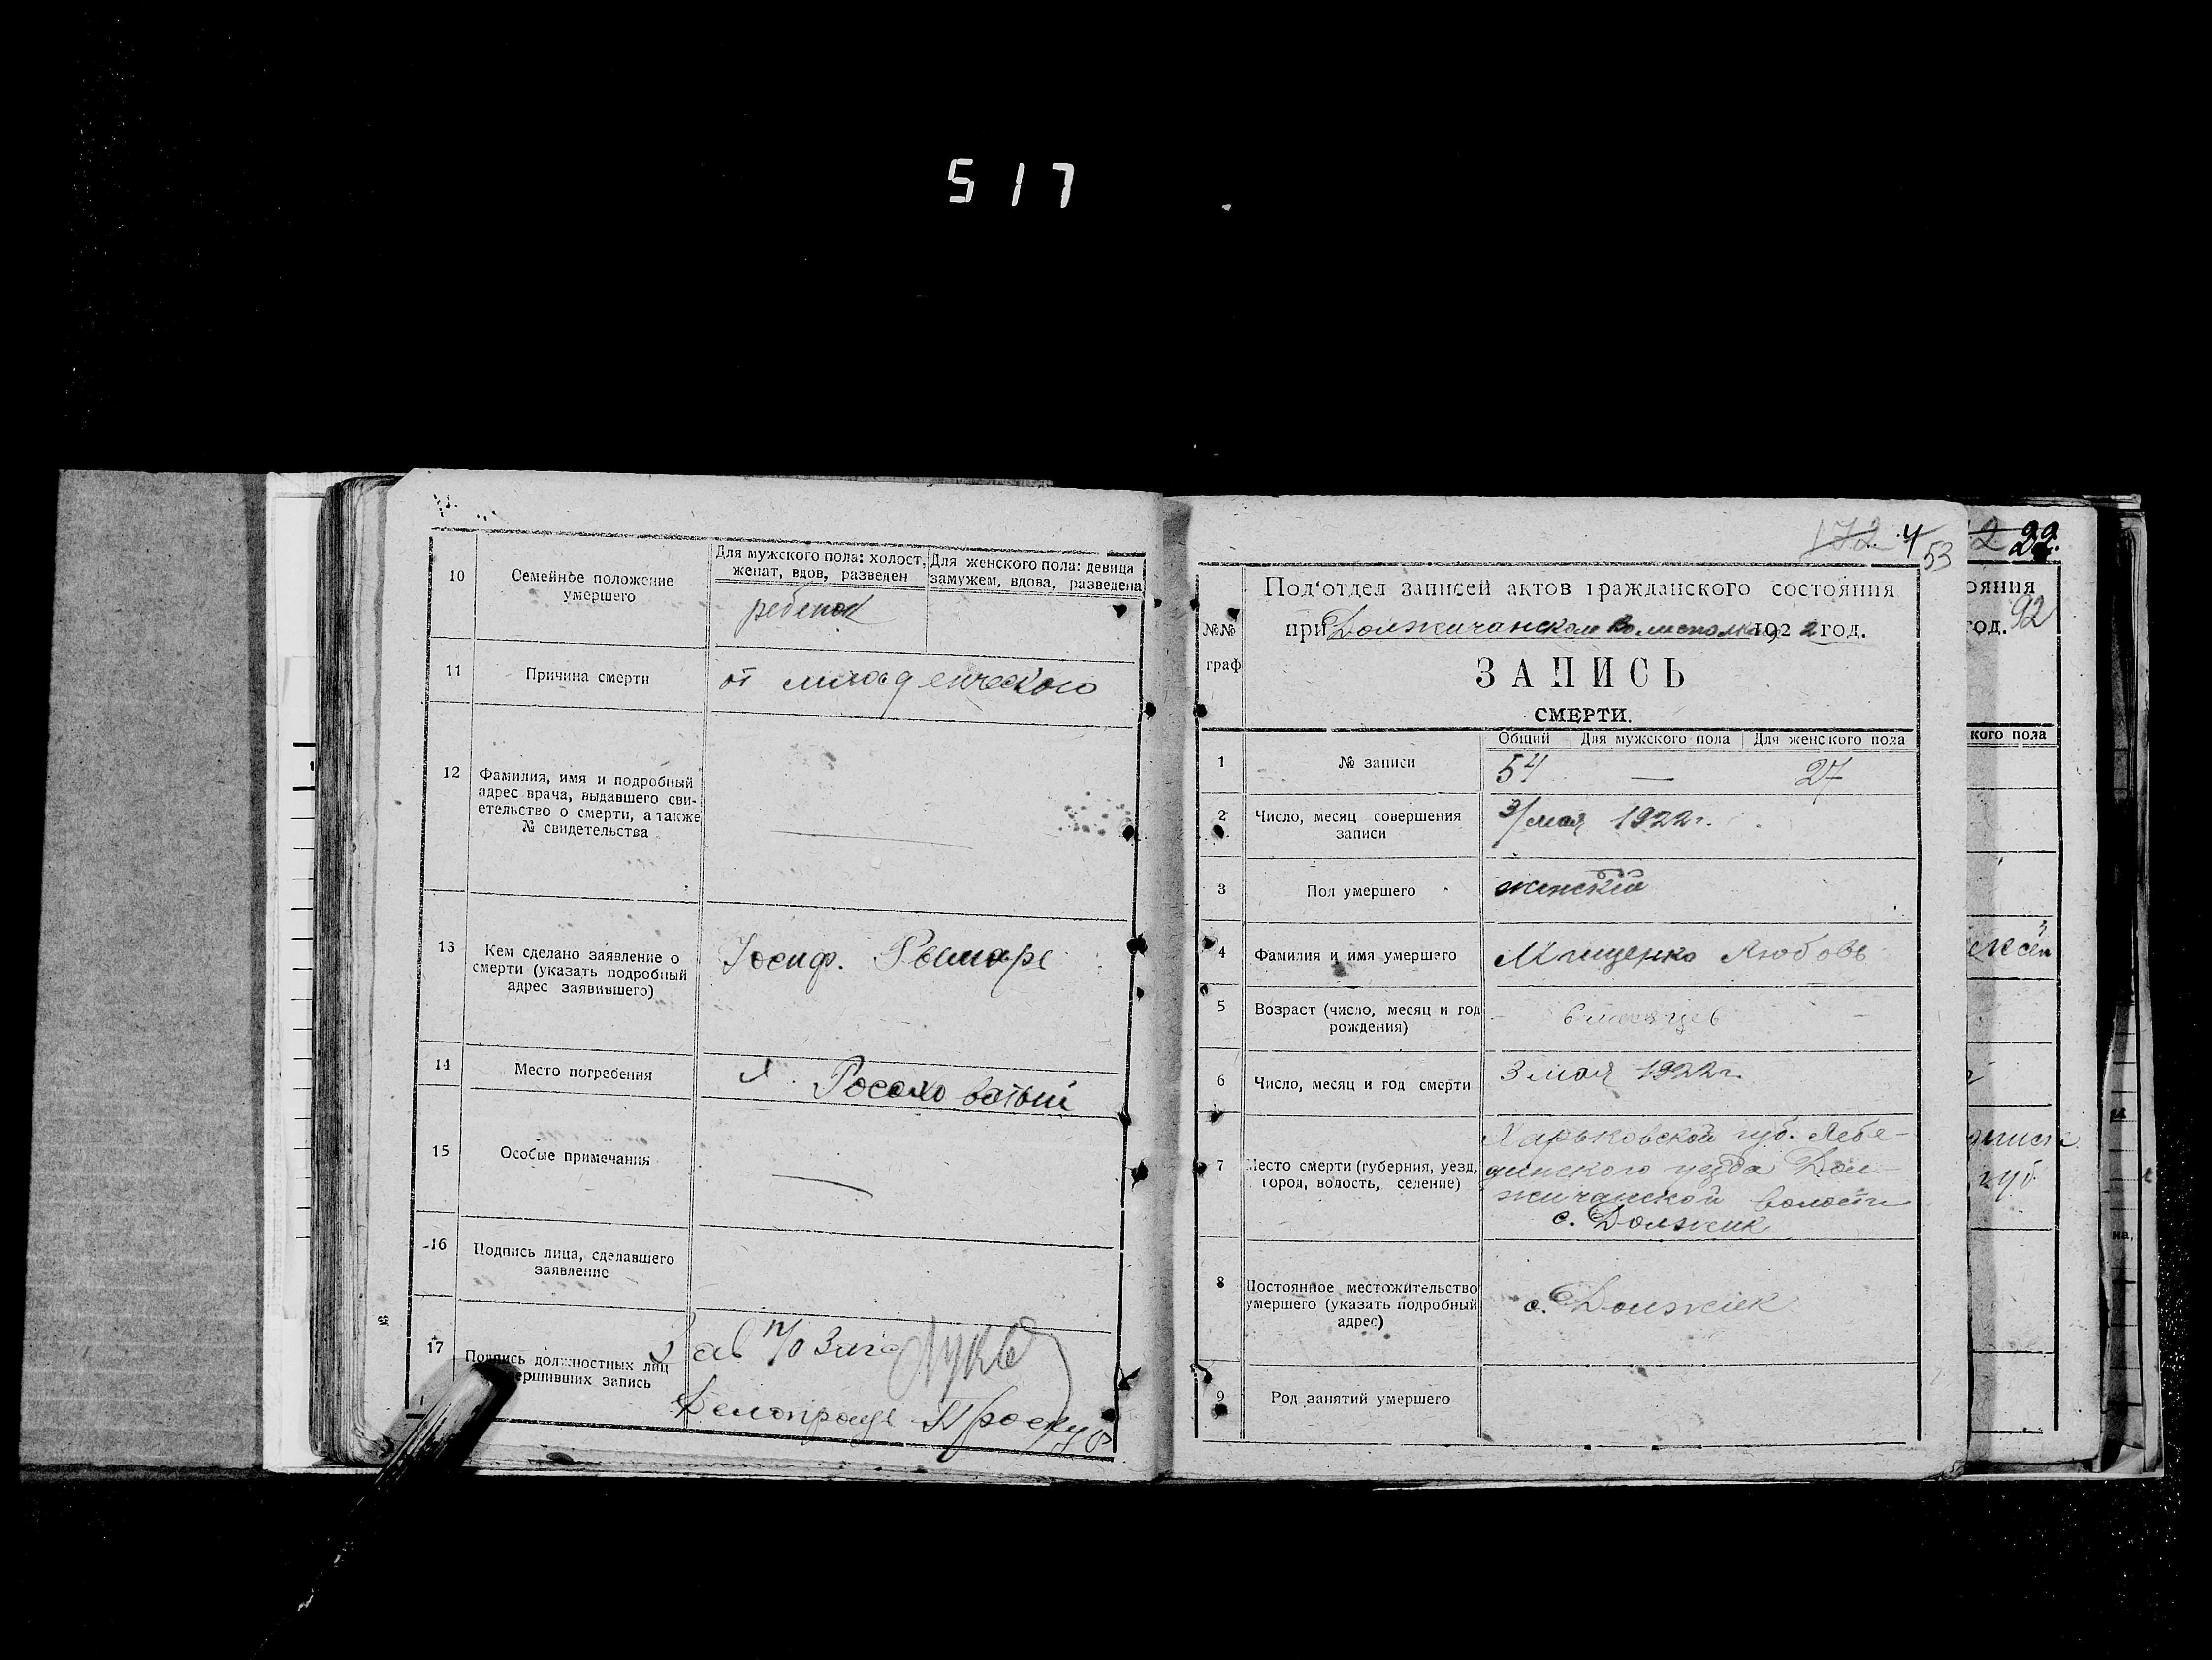 517
10
Семейное положение
умершего
Для мужского пола: холост,
женат, вдов, разведен
Для женского пола: девица
замужем, вдова, разведена
ребенок
11
Причина смерти
от младенческого
12
Фамилия, имя и подробный
адрес врача, выдавшего сви-
етельство о смерти, а также
№ свидетельства
13
Кем сделано заявление о
смерти (указать подробный
адрес заявившего)
Иосиф.
14
Место погребения
х. Росоховатый
15
Особые примечания
16
Подпись лица, сделавшего
заявление
17
Подпись должностных лиц
ершивших запись
Зав п/о
Делопроизв
172 4
53
Под'отдел записей актов гражданского состояния
при Должичанском Волисполкоме 1922 год.
№№
граф
ЗАПИСЬ
СМЕРТИ.
Общий Для мужского пола Для женского пола
1
№ записи
54 — 27
2
Число, месяц совершения
записи
3/мая 1922г.
3
Пол умершего
женский
4
Фамилия и имя умершего
Мищенко Любовь
5
Возраст (число, месяц и год
рождения)
6 месяцев
6
Число, месяц и год смерти
3 мая 1922г.
7
Место смерти (губерния, уезд,
город, волость, селение)
Харьковской губ. Лебе-
динского уезда Дол-
жичанской волости
с. Должик
8
Постоянное местожительство
умершего (указать подробный
адрес)
с. Должик
9
Род занятий умершего
22
ояния
год.
92
кого пола
губ